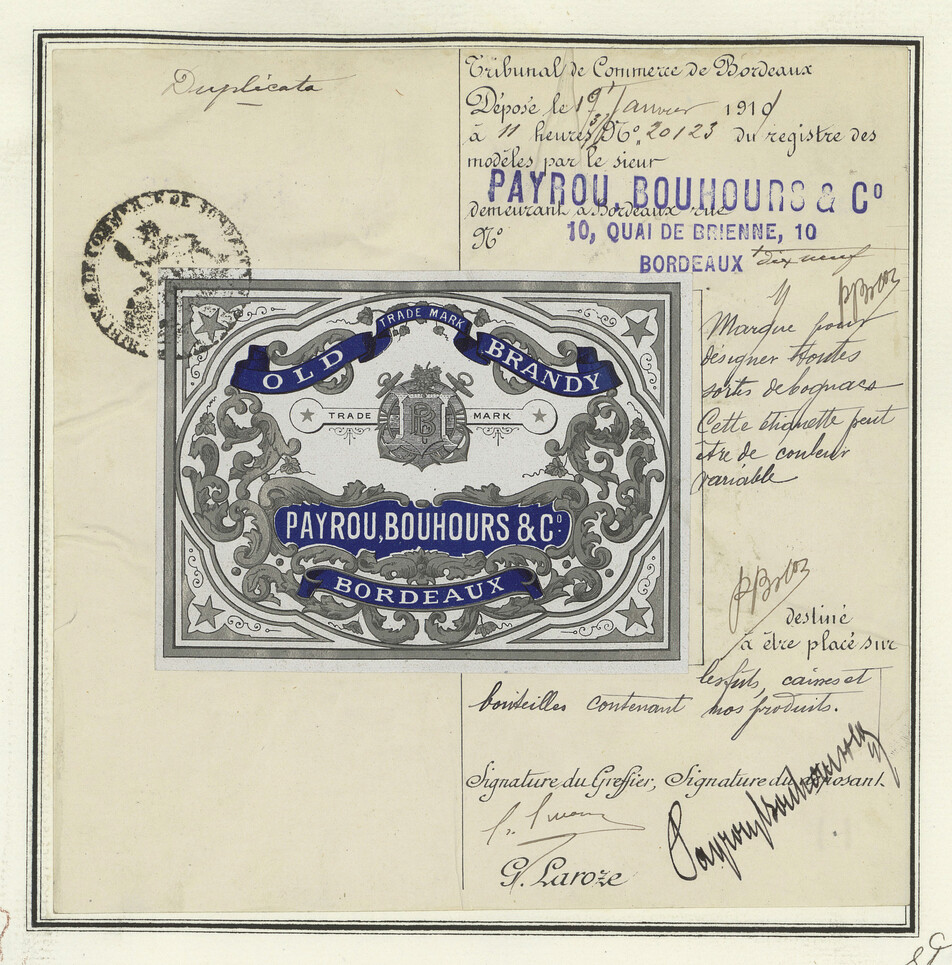 Duplicata
Tribunal de Commerce de Bordeaux
Déposé le 19 Janvier 191
à 11 heures N° 20123 du registre des
modèles par le sieur
PAYROU, BOUHOURS & Cº
demeurant à Bordeaux rue
N° 10, QUAI DE BRIENNE, 10
BORDEAUX dix neuf
TRIBUNAL DE COMMERCE DE BORDEAUX
Marque pour
désigner toutes
sortes de cognacs
Cette étiquette peut
être de couleur
variable
TRADE MARK
OLD BRANDY
TRADE MARK
PAYROU, BOUHOURS & Cº
BORDEAUX
destiné
à être placé sur
les fûts, caisses et
bouteilles contenant nos produits.
Signature du Greffier, Signature du déposant
Payrou Bouhours & Cº
G. Laroze